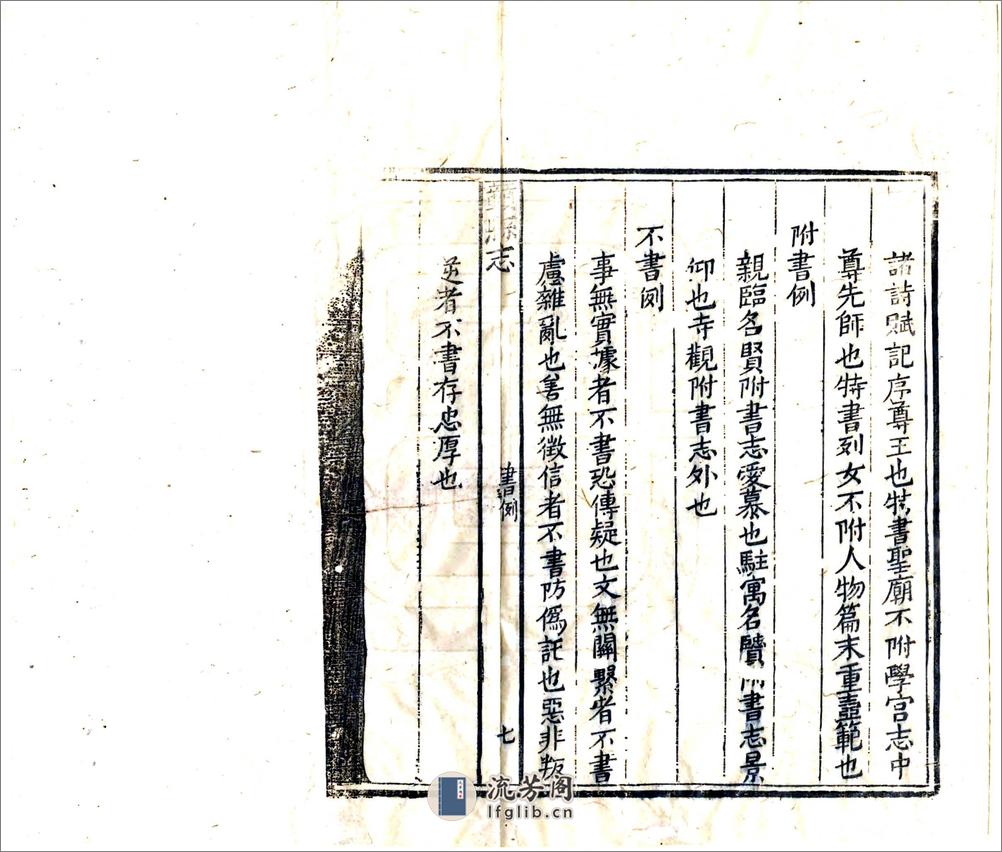 諸詩賦記序尊王也特書聖廟不附學宮志中
尊先師也特書列女不附人物篇末重壼範也
附書例
親臨名賢附書志愛慕也駐寓名賢附書志景
仰也寺觀附書志外也
不書例
事無實據者不書恐傳疑也文無關繫者不書
慮雜亂也善無徵信者不書防偽託也惡非叛
縣志
書例
七
逆者不書存忠厚也
流芳阁
lfglib.cn